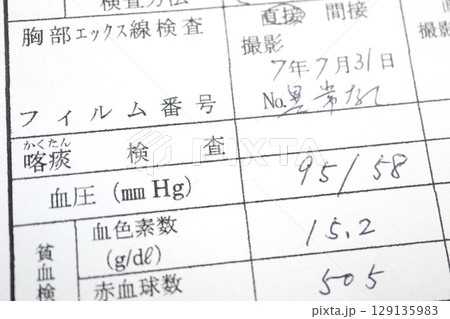 検査方法
直接 間接
胸部エックス線検査
撮影
撮影
7年7月31日
フィルム番号
No.異常なし
かくたん
喀痰 検査
血圧 (mm Hg)
95/58
貧血検
血色素数
(g/dℓ)
15.2
赤血球数
505
PIXTA
pixta.jp - 129135983